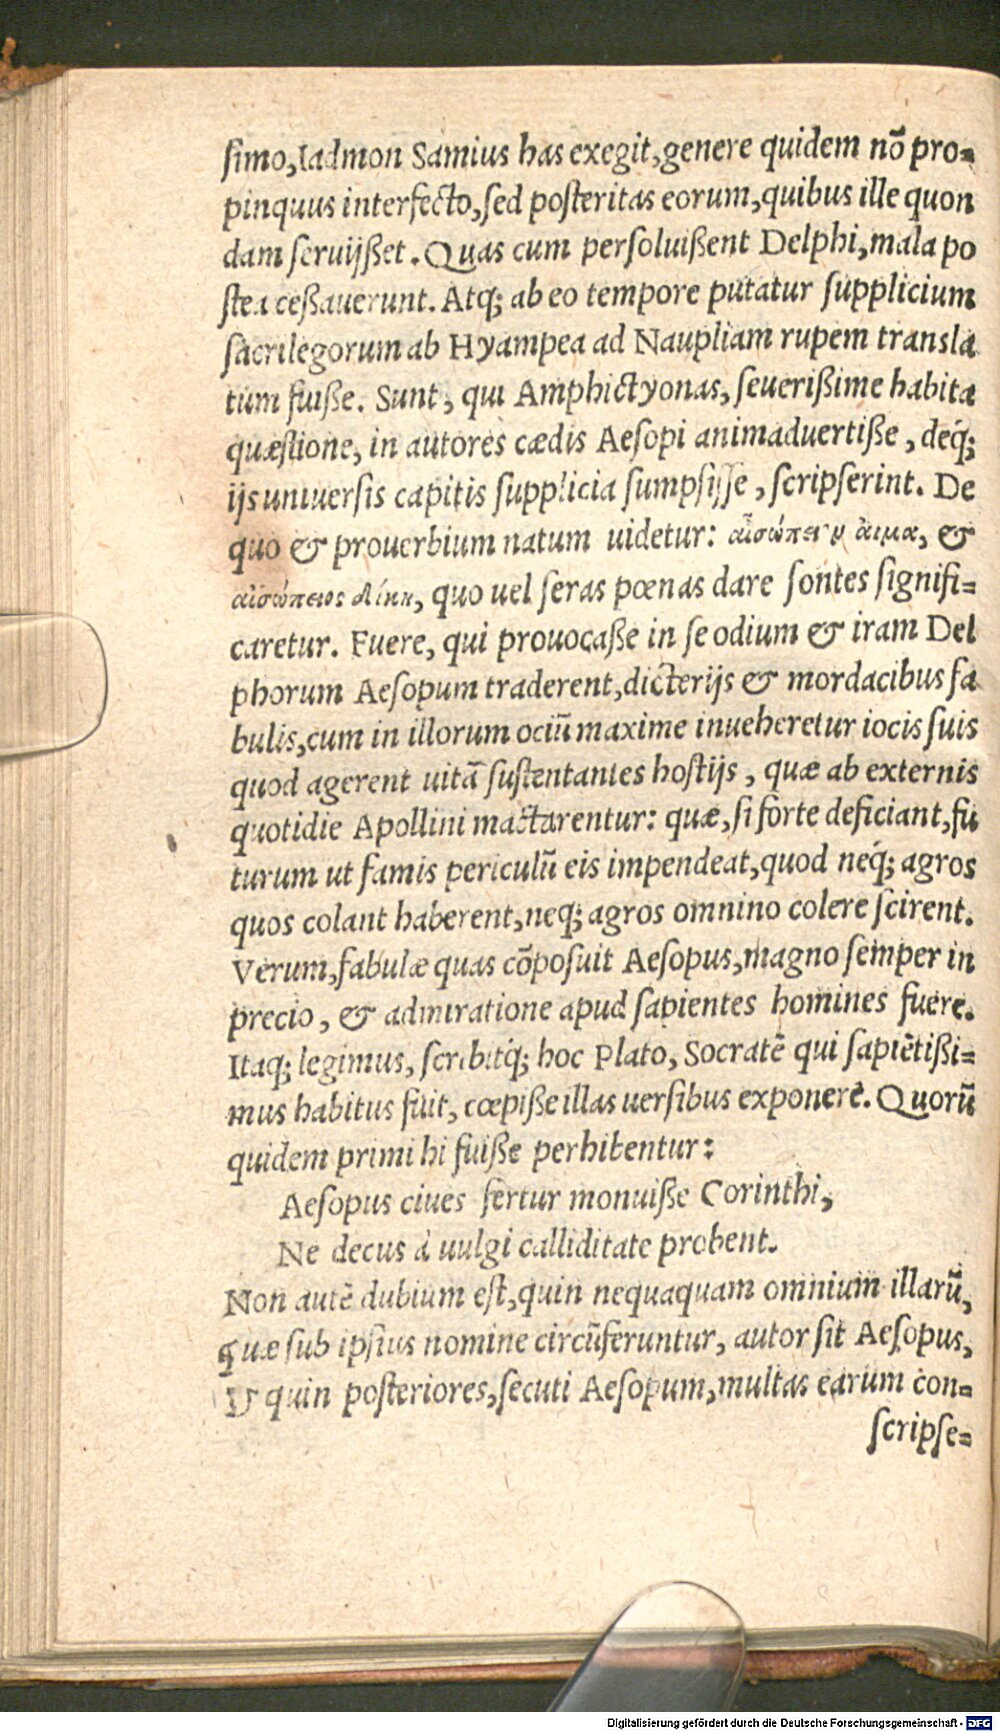 ſimo, Iadmon Samius has exegit, genere quidem nõ pro=
pinquus interfecto, ſed poſteritas eorum, quibus ille quon
dam ſeruijßet. Quas cum perſoluißent Delphi, mala po
ſtea ceßauerunt. Atq; ab eo tempore putatur ſupplicium
ſacrilegorum ab Hyampea ad Naupliam rupem transla
tum fuiße. Sunt, qui Amphictyonas, ſeuerißime habita
quæſtione, in autores cædis Aeſopi animaduertiße, deq́;
ijs uniuerſis capitis ſupplicia ſumpſiſſe, ſcripſerint. De
quo & prouerbium natum uidetur: αἰσώπειον ἇιμα, &
αἰσώπειος δίκη, quo uel ſeras pœnas dare ſontes ſignifi=
caretur. Fuere, qui prouocaße in ſe odium & iram Del
phorum Aeſopum traderent, dicterijs & mordacibus fa
bulis, cum in illorum ociũ maxime inueheretur iocis ſuis
quod agerent uitã ſuſtentantes hoſtijs, quæ ab externis
quotidie Apollini mactarentur: quæ, ſi forte deficiant, fu
turum ut famis periculũ eis impendeat, quod neq́; agros
quos colant haberent, neq; agros omnino colere ſcirent.
Verum, fabulæ quas cõpoſuit Aeſopus, magno ſemper in
precio, & admiratione apud ſapientes homines fuere.
Itaq; legimus, ſcribitq́; hoc Plato, Socratẽ qui ſapiẽtißi=
mus habitus fuit, cœpiße illas uerſibus exponere. Quorũ
quidem primi hi fuiße perhibentur:
Aeſopus ciues fertur monuiße Corinthi,
Ne decus à uulgi calliditate probent.
Non autẽ dubium eſt, quin nequaquam omnium illarũ,
quæ ſub ipſius nomine circũferuntur, autor ſit Aeſopus,
quin poſteriores, ſecuti Aeſopum, multas earum con=
ſcripſe=
Digitalisierung gefördert durch die Deutsche Forschungsgemeinschaft - DFG